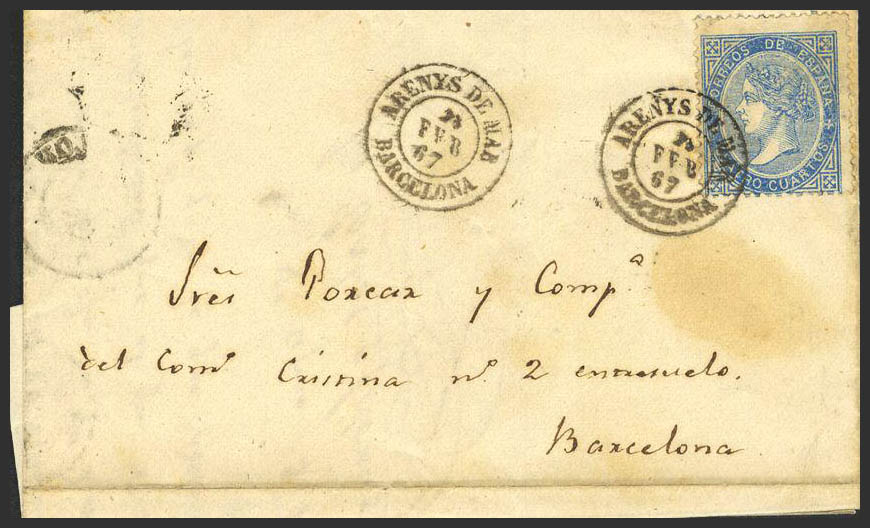 CORREOS DE ESPAÑA
CUARTOS
ARENYS DE MAR
FEB
67
BARCELONA
ARENYS DE MAR
FEB
67
BARCELONA
Sres Porcar y Compª
del Comº Cristina nº 2 entresuelo.
Barcelona